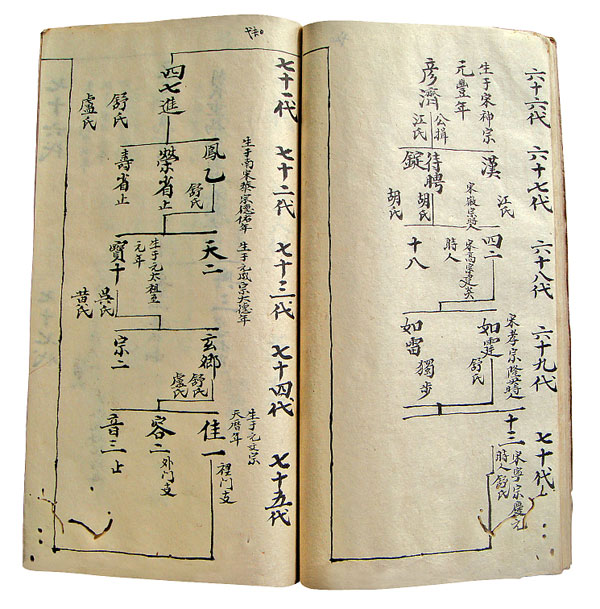 六十六代
生于宋神宗
元豐年
彦濟
公揖
江氏
六十七代
漢
江氏
宋徽宗時人
待聘
胡氏
錠
胡氏
六十八代
四二
宋高宗建炎
時人
十八
六十九代
宋孝宗隆興
如霆
舒氏
如雷
獨步
七十代
十三
宋寧宗慶元
時人舒氏
七十一代
四七進
舒氏
盧氏
七十二代
生于南宋恭宗德佑年
鳳乙
舒氏
榮省止
壽省止
七十三代
生于元成宗大德年
天二
生于元太祖
元年
寶十
吳氏
黃氏
七十四代
玄鄉
舒氏
盧氏
宗二
七十五代
生于元文宗
天曆年
佳一
裡门支
容二
外门支
音三止